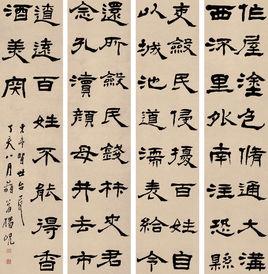 作屋塗色脩通大溝
西流里外南注恐縣
吏斂民侵擾百姓自
以城池道濡麥給令
還所斂民錢材史君
念孔瀆顏母井去市
遼遠百姓不能得香
酒美肉
賢世台
丁亥八月藐翁楊峴